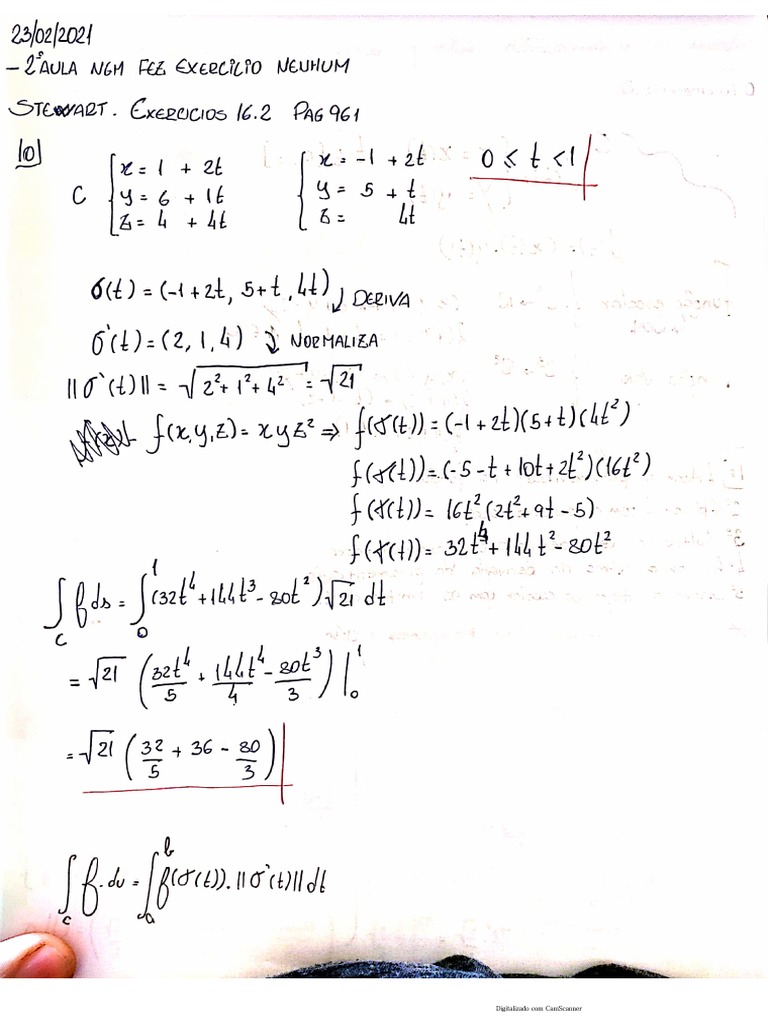 23/02/2021
- 2ª AULA NGM FEZ EXERCÍCIO NENHUM
STEWART. EXERCICIOS 16.2 PAG 961
10)
C { x = 1 + 2t   { x = -1 + 2t   0 ≤ t < 1
{ y = 6 + 1t   { y = 5 + t
{ z = 4 + 4t   { z = 4t
σ(t) = (-1 + 2t, 5 + t, 4t) ↓ DERIVA
σ'(t) = (2, 1, 4) ↓ NORMALIZA
||σ'(t)|| = √(2² + 1² + 4²) = √21
f(x,y,z) = xyz² ⇒ f(σ(t)) = (-1 + 2t)(5 + t)(4t²)
f(σ(t)) = (-5 - t + 10t + 2t²)(16t²)
f(σ(t)) = 16t²(2t² + 9t - 5)
f(σ(t)) = 32t⁴ + 144t² - 80t²
∫_C f ds = ∫_0^1 (32t⁴ + 144t³ - 80t²) √21 dt
= √21 (32t⁴/5 + 144t⁴/4 - 80t³/3) |_0^1
= √21 (32/5 + 36 - 80/3)
∫_C f. dv = ∫_a^b f(σ(t)). ||σ'(t)|| dt
Digitalizado com CamScanner